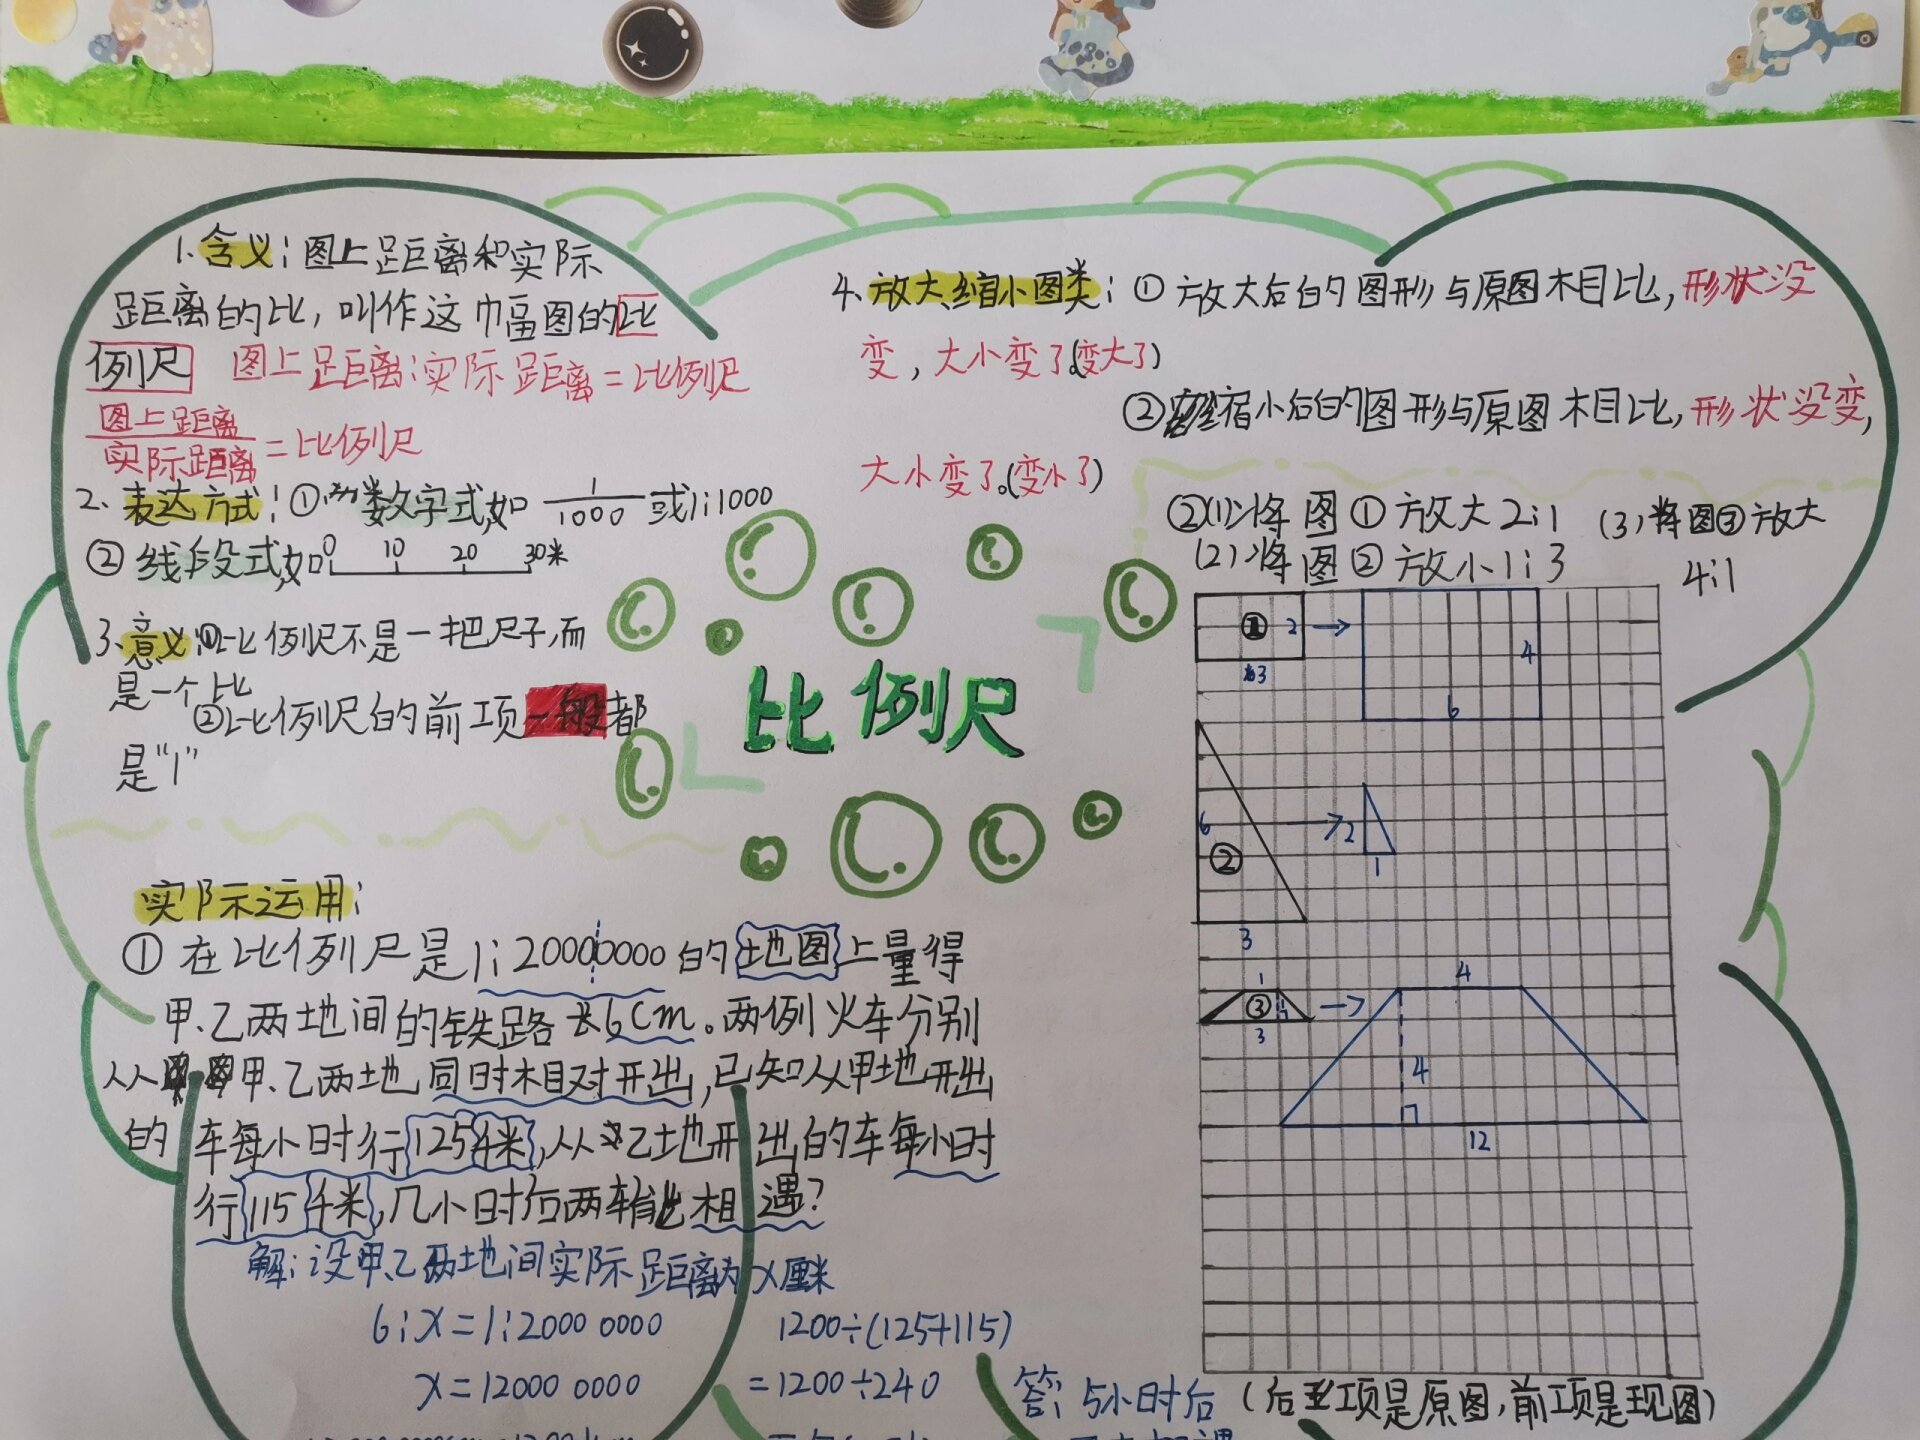 1.含义:图上距离和实际
距离的比,叫作这巾幅图的比
例尺 图上距离:实际距离=比例尺
图上距离
实际距离 =比例尺
2.表达方式:①数字式,如 1/1000 或1:1000
②线段式,如 0 10 20 30米
3.意义:①比例尺不是一把尺子,而
是一个比
②比例尺的前项一般都
是“1”
比例尺
4.放大缩小图类:①放大后的图形与原图相比,形状没
变,大小变了(变大了)
②缩小后的图形与原图相比,形状没变,
大小变了。(变小了)
②(1)将图①放大2:1 (3)将图③放大
(2)将图②放小1:3 4:1
① 2 → 4
3 6
6 ② → 2
3 1
1 ③ 3 → 4
4
12
(后项是原图,前项是现图)
实际运用:
①在比例尺是1:20000000的地图上量得
甲、乙两地间的铁路长6cm。两例火车分别
从甲、乙两地同时相对开出,已知从甲地开出
的车每小时行125千米,从乙地开出的车每小时
行115千米,几小时后两车能相遇?
解:设甲、乙两地间实际距离为x厘米
6:x=1:2000 0000
x=12000 0000
1200÷(125+115)
=1200÷240
答:5小时后